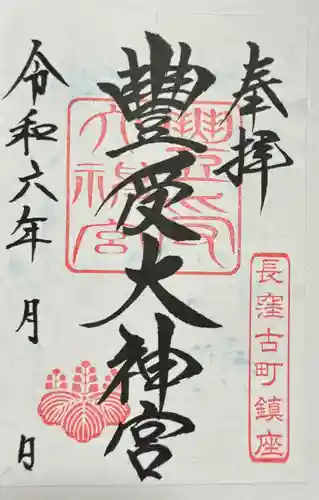 奉拝
豊受大神宮
豊受大神宮
長窪古町鎮座
令和六年 月 日